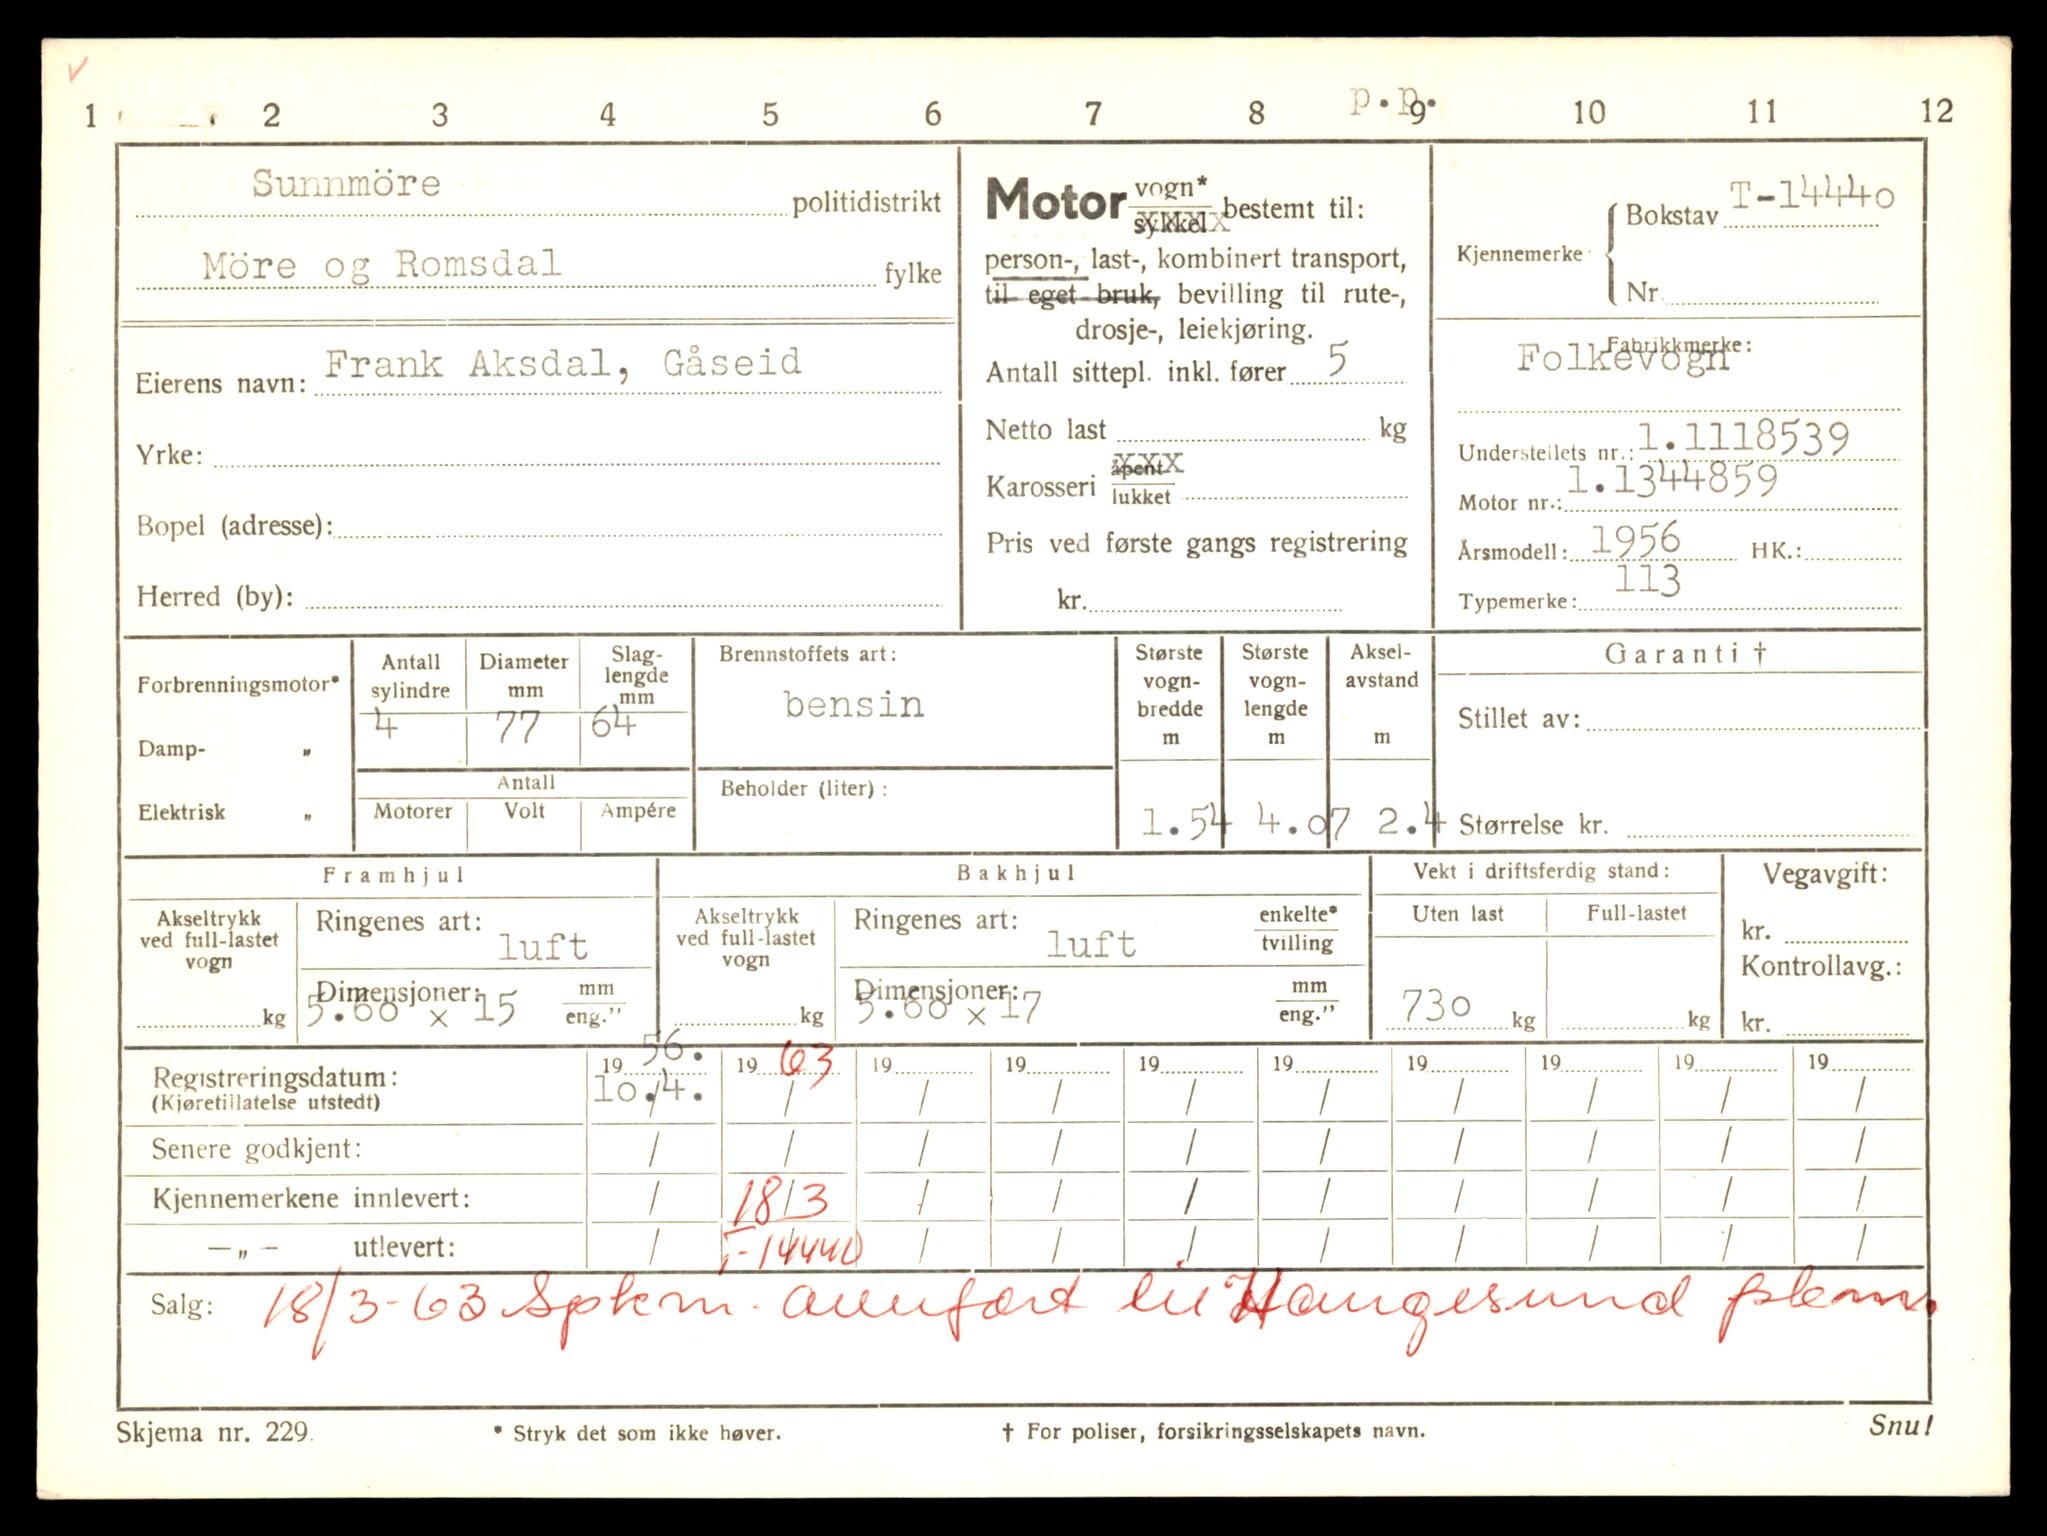 V
1 2 3 4 5 6 7 8 p.p. 9 10 11 12
Sunnmöre politidistrikt
Möre og Romsdal fylke
Eierens navn: Frank Aksdal, Gåseid
Yrke:
Bopel (adresse):
Herred (by):
Motor vogn* / sykkel bestemt til:
person-, last-, kombinert transport,
til eget bruk, bevilling til rute-,
drosje-, leiekjøring.
Antall sittepl. inkl. fører 5
Netto last kg
Karosseri åpent / lukket
Pris ved første gangs registrering
kr.
Kjennemerke { Bokstav T-14440
Nr
Fabrikkmerke: Folkevogn
Understellets nr.: 1.1118539
Motor nr.: 1.1344859
Årsmodell: 1956 HK.:
Typemerke: 113
Forbrenningsmotor*
Damp- „
Elektrisk „
Antall sylindre 4
Diameter mm 77
Slag-lengde mm 64
Antall
Motorer Volt Ampére
Brennstoffets art:
bensin
Beholder (liter) :
Største vogn-bredde m 1.54
Største vogn-lengde m 4.07
Aksel-avstand m 2.4
Garanti †
Stillet av:
Størrelse kr.
Framhjul
Akseltrykk ved full-lastet vogn kg
Ringenes art: luft
Dimensjoner: 5.60 x 15 mm / eng.”
Bakhjul
Akseltrykk ved full-lastet vogn kg
Ringenes art: luft enkelte* / tvilling
Dimensjoner: 5.60 x 17 mm / eng.”
Vekt i driftsferdig stand:
Uten last 730 kg
Full-lastet kg
Vegavgift:
kr.
Kontrollavg.:
kr.
Registreringsdatum: 19 56. 19 63 19 19 19 19 19 19 19 19
(Kjøretillatelse utstedt) 10./4. / / / / / / / / /
Senere godkjent: / / / / / / / / / /
Kjennemerkene innlevert: / 18/3 / / / / / / / /
— „ — utlevert: / T-14440 / / / / / / / /
Salg: 18/3-63 Spkm. overført til Haugesund pkm.
Skjema nr. 229.
* Stryk det som ikke høver.
† For poliser, forsikringsselskapets navn.
Snu!